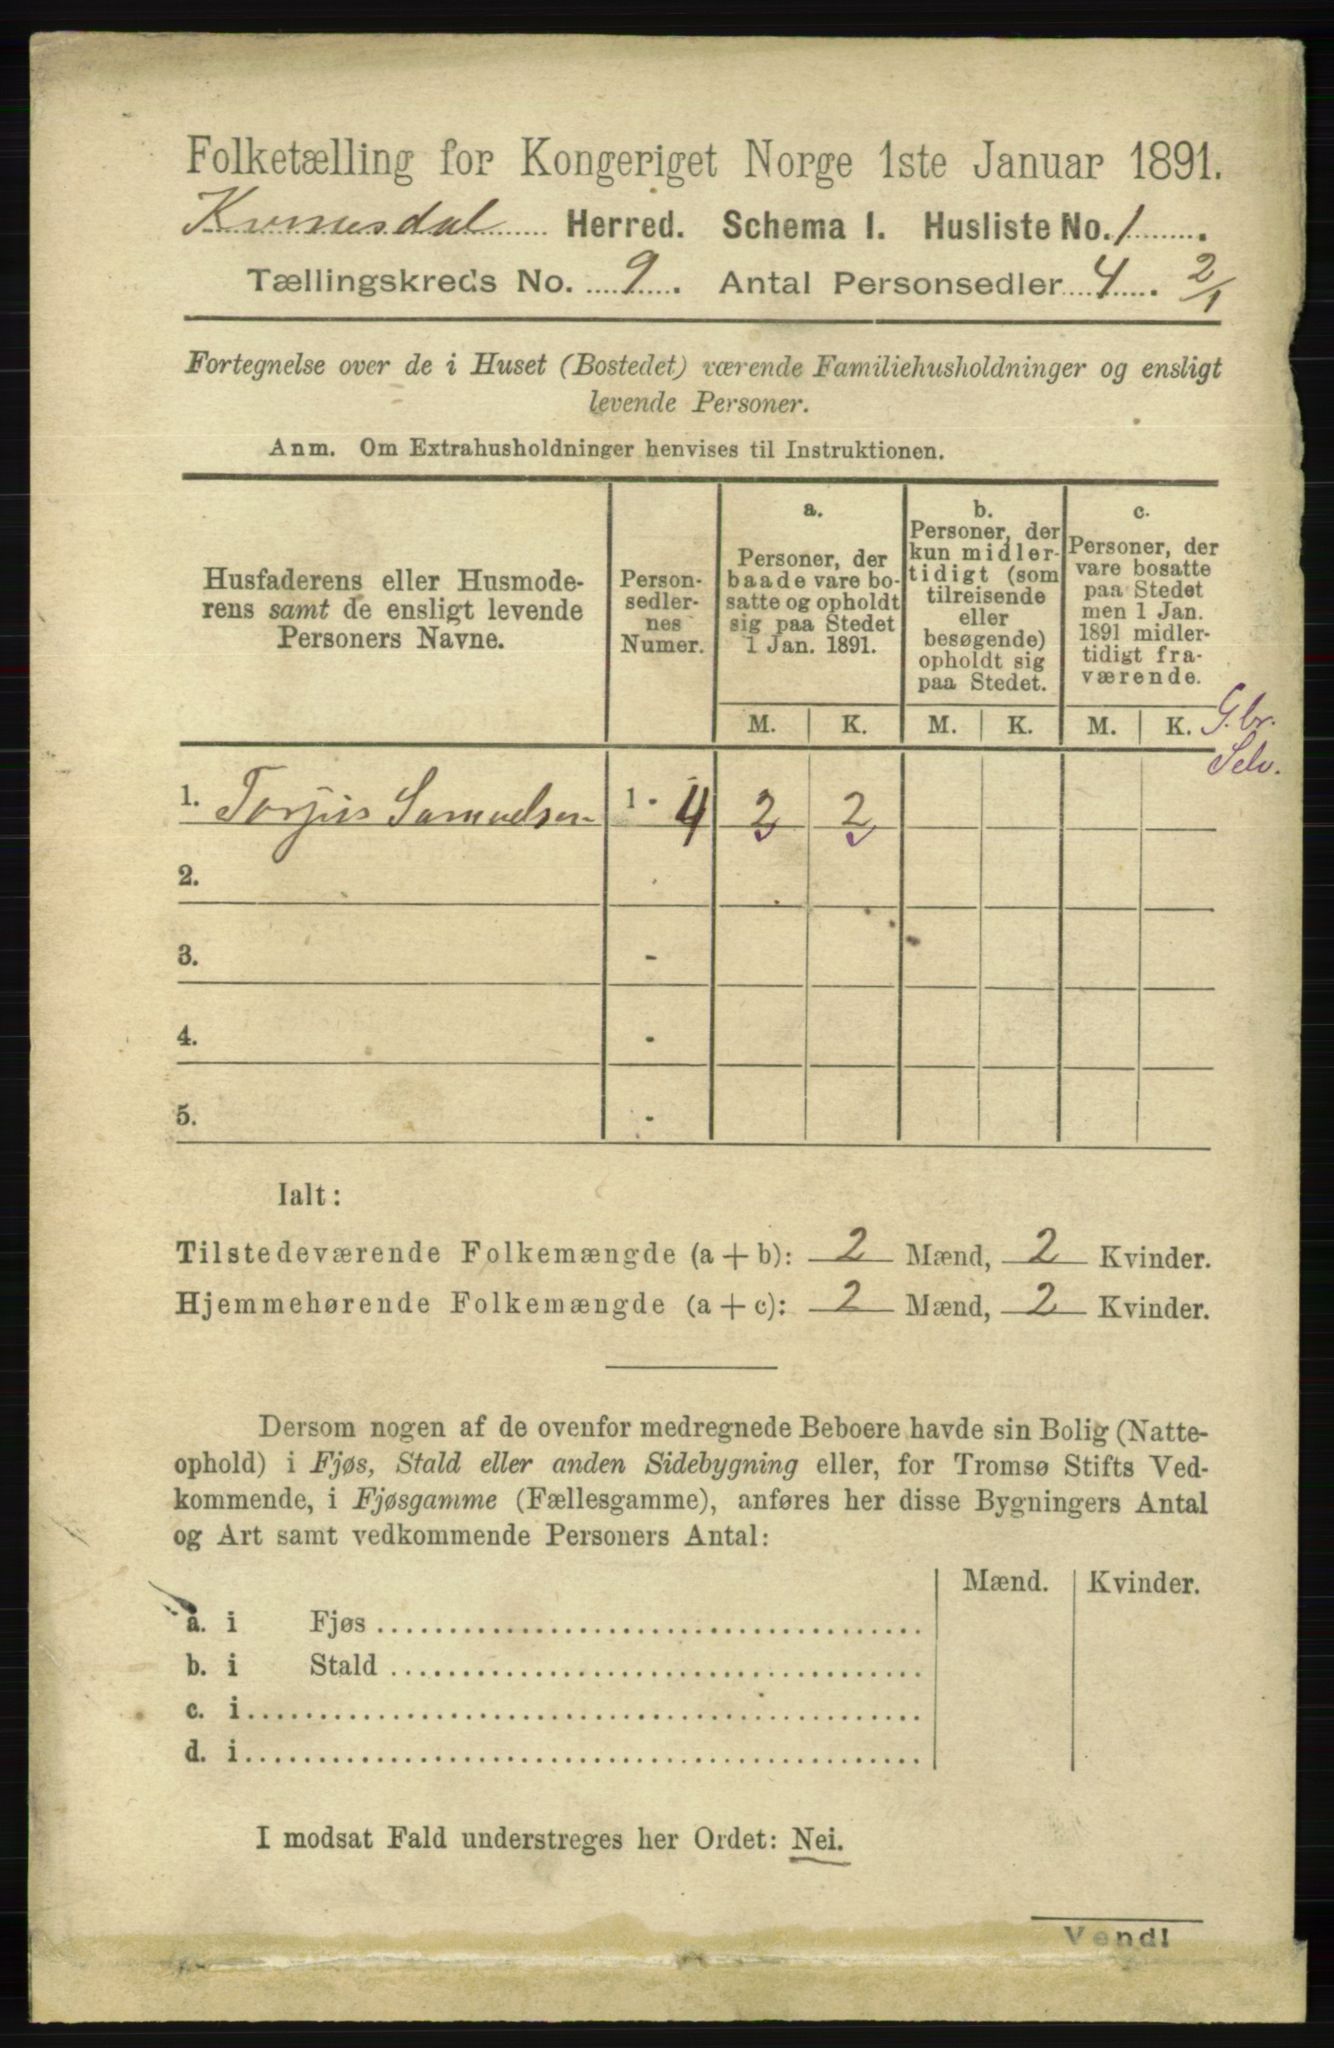 Folketælling for Kongeriget Norge 1ste Januar 1891.
Kvinesdal Herred. Schema I. Husliste No. 1.
Tællingskreds No. 9. Antal Personsedler 4. 2/1
Fortegnelse over de i Huset (Bostedet) værende Familiehusholdninger og ensligt
levende Personer.
Anm. Om Extrahusholdninger henvises til Instruktionen.
Husfaderens eller Husmode-
rens samt de ensligt levende
Personers Navne.
Person-
sedler-
nes
Numer.
a.
Personer, der
baade vare bo-
satte og opholdt
sig paa Stedet
1 Jan. 1891.
b.
Personer, der
kun midler-
tidigt (som
tilreisende
eller
besøgende)
opholdt sig
paa Stedet.
c.
Personer, der
vare bosatte
paa Stedet
men 1 Jan.
1891 midler-
tidigt fra-
værende.
M. K. M. K. M. K. G.br.
Selv.
1. Torjus Samuelsen 1 - 4 2 2
2.
3. -
4. -
5. -
Ialt:
Tilstedeværende Folkemængde (a + b): 2 Mænd, 2 Kvinder.
Hjemmehørende Folkemængde (a + c): 2 Mænd, 2 Kvinder.
Dersom nogen af de ovenfor medregnede Beboere havde sin Bolig (Natte-
ophold) i Fjøs, Stald eller anden Sidebygning eller, for Tromsø Stifts Ved-
kommende, i Fjøsgamme (Fællesgamme), anføres her disse Bygningers Antal
og Art samt vedkommende Personers Antal:
Mænd. Kvinder.
a. i Fjøs
b. i Stald
c. i
d. i
I modsat Fald understreges her Ordet: Nei.
Vend!